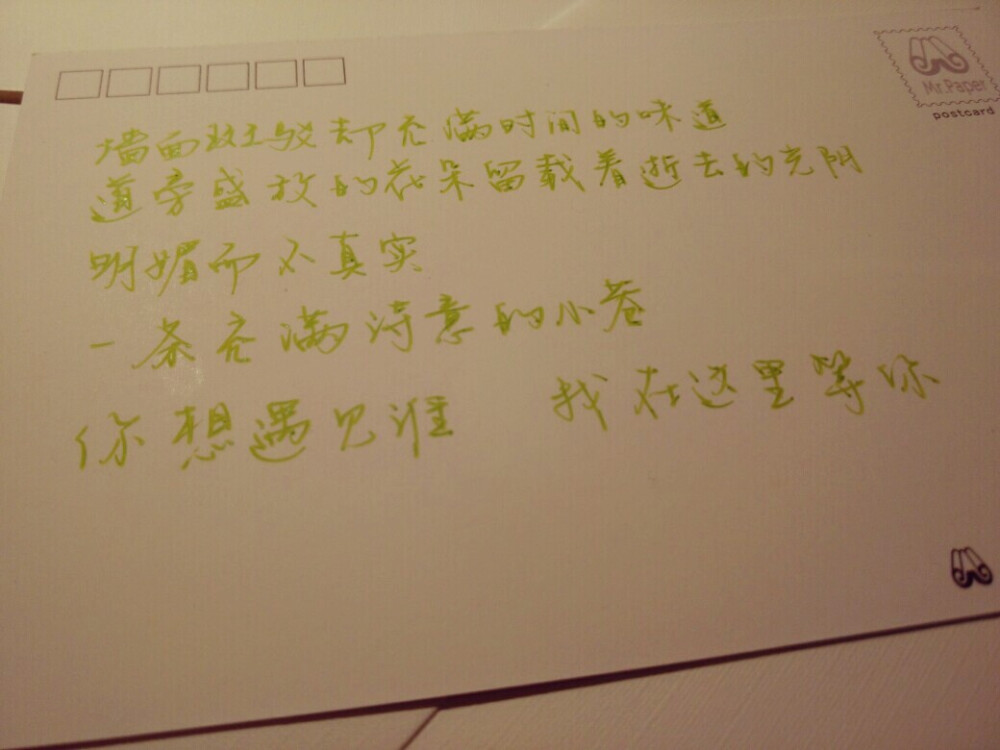 Mr.Paper
postcard
墙面斑驳却充满时间的味道
道旁盛放的花朵留载着逝去的光阴
明媚而不真实
一条充满诗意的小巷
你想遇见谁 我在这里等你